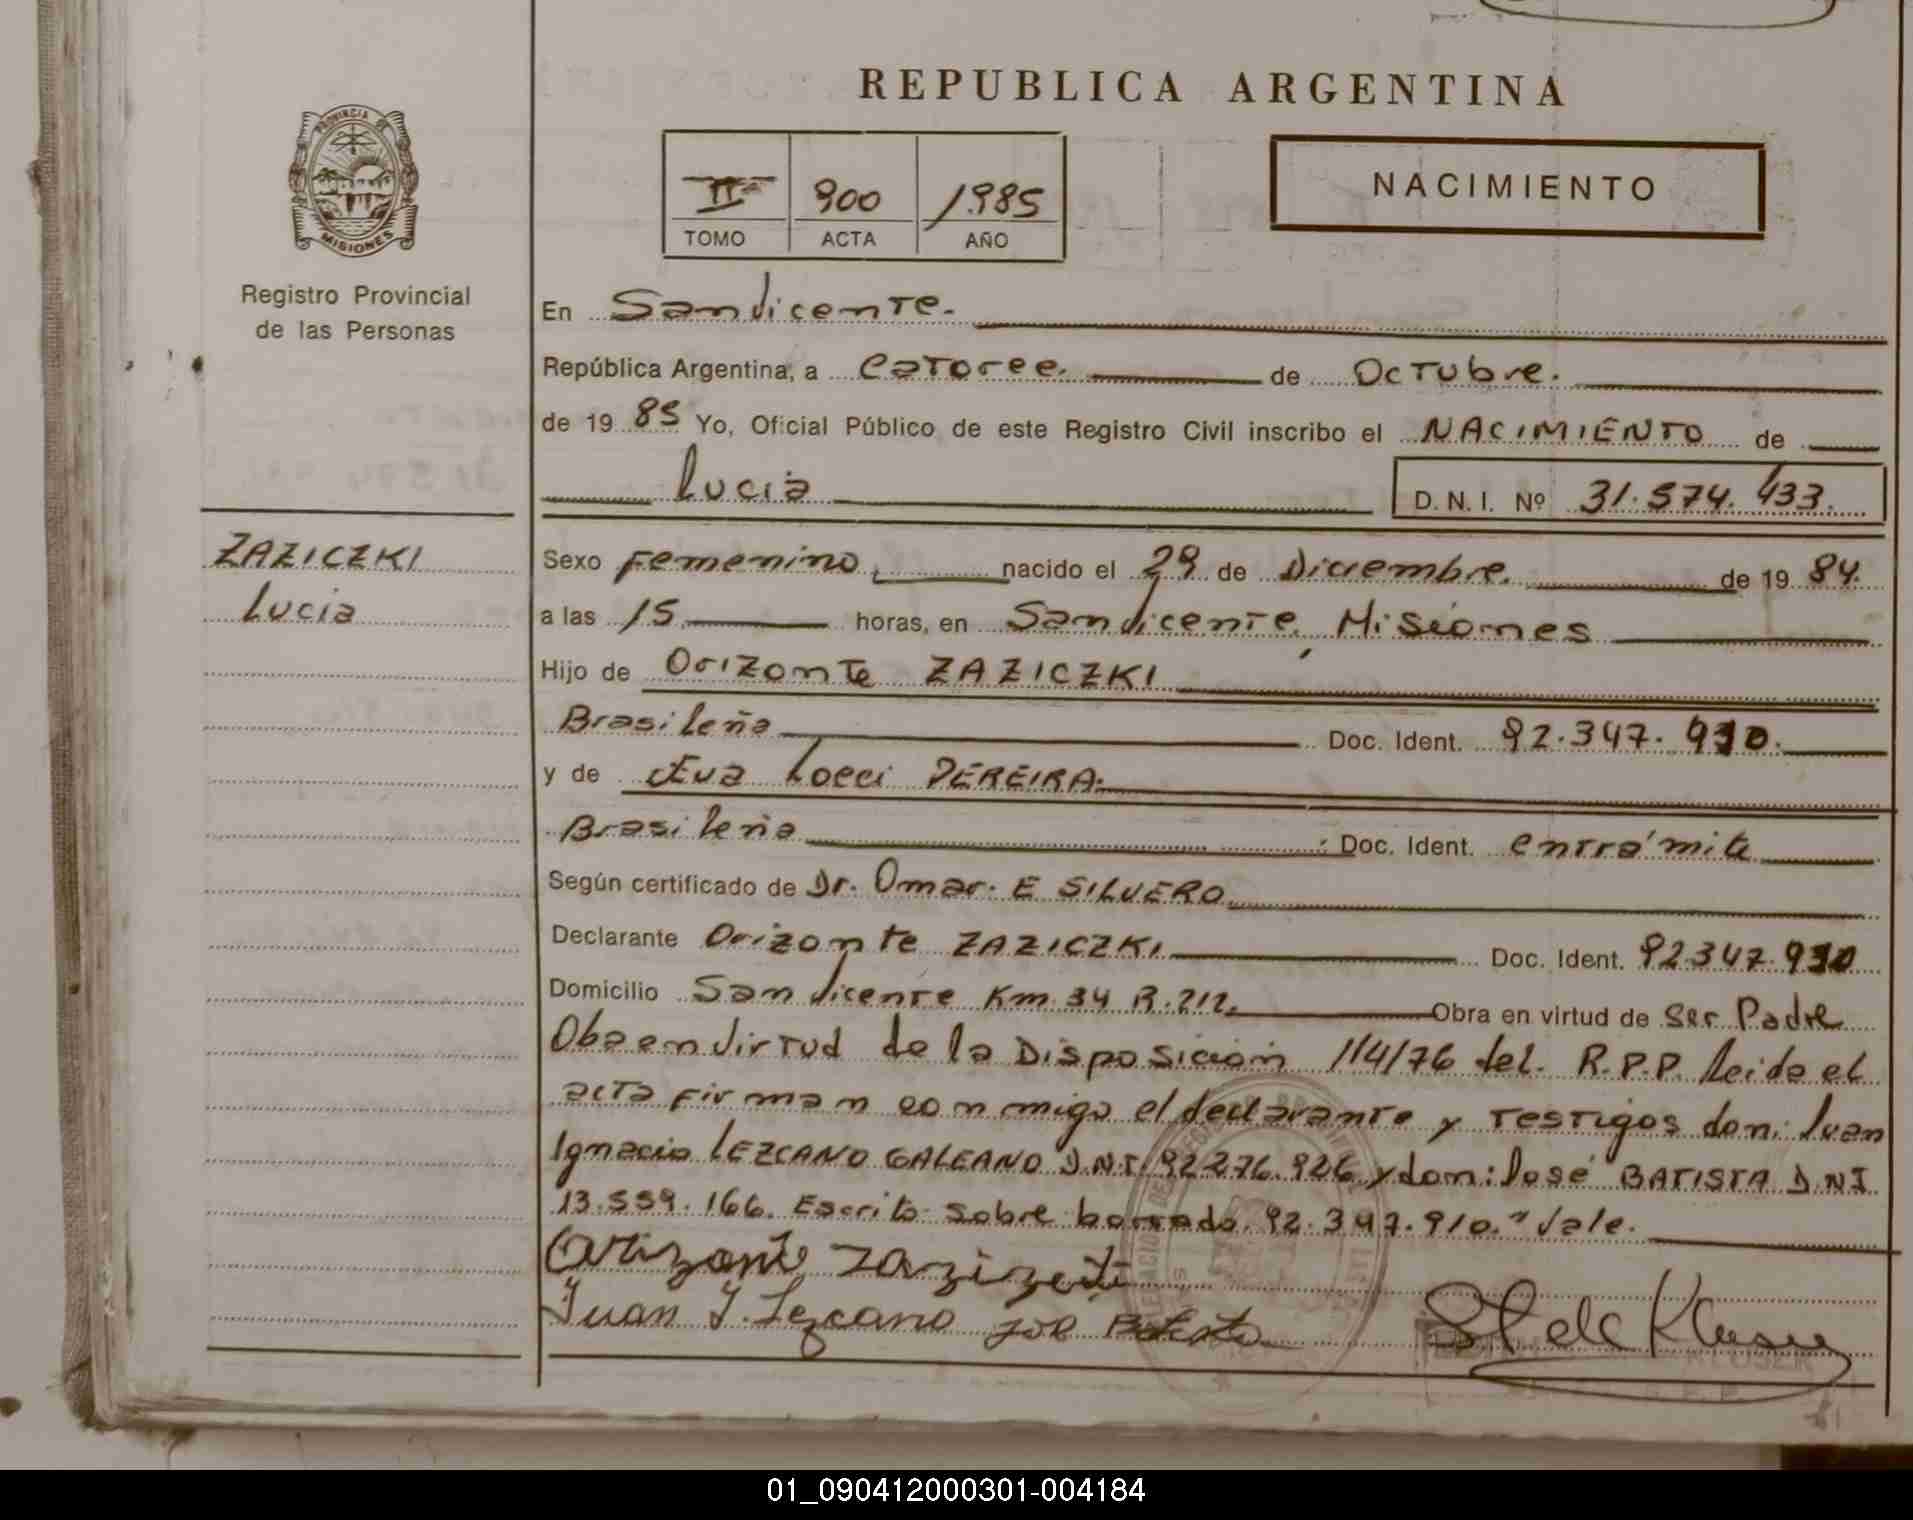 REPUBLICA ARGENTINA
PROVINCIA DE
MISIONES
Registro Provincial
de las Personas
II 900 1985
TOMO ACTA AÑO
NACIMIENTO
En San Vicente.
República Argentina, a Catorce. de Octubre.
de 19 85 Yo, Oficial Público de este Registro Civil inscribo el NACIMIENTO de
Lucia D. N. I. Nº 31.574.433.
ZAZICZKI
Lucia
Sexo Femenino, nacido el 29 de Diciembre. de 19 84.
a las 15 horas, en San Vicente, Misiones
Hijo de Orizonte ZAZICZKI
Brasileña Doc. Ident. 92.347.910.
y de Eva Loeci PEREIRA.
Brasileña Doc. Ident. entrámite
Según certificado de Dr. Omar. E SILVERO
Declarante Orizonte ZAZICZKI Doc. Ident. 92.347.910
Domicilio San Vicente Km. 34 R. 212. Obra en virtud de Ser Padre
Obra en Virtud de la Disposición 114/76 del. R.P.P. Leida el
acta Firman conmigo el declarante y Testigos don: Juan
Ignacio LEZCANO GALEANO D.N.I. 92.276.926 y don: José BATISTA D.N.I
13.559.166. Escrito sobre borrado. 92.347.910." Vale.
Orizonte
Juan I. Lezcano José Batista
KLUSEK
01_090412000301-004184